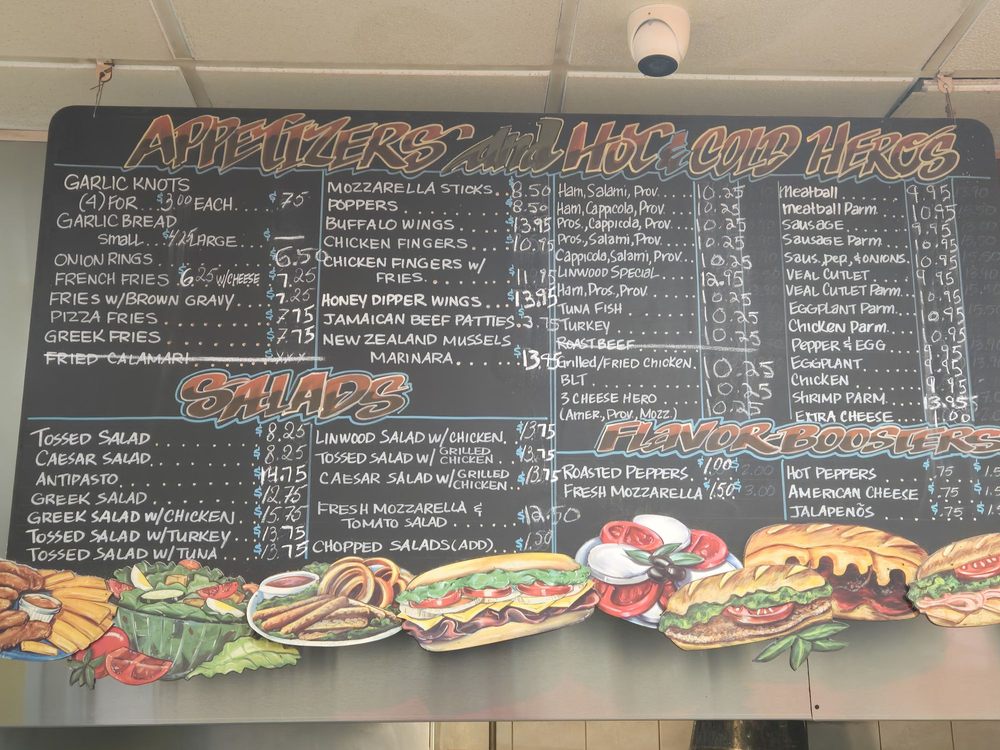 APPETIZERS and HOT & COLD HERO'S
GARLIC KNOTS
(4) FOR $3.00 EACH.... $.75
GARLIC BREAD
SMALL...$4.25 LARGE.... $ —
ONION RINGS............$6.50
FRENCH FRIES $6.25 W/CHEESE $7.25
FRIES W/BROWN GRAVY....$7.25
PIZZA FRIES............$7.75
GREEK FRIES............$7.75
FRIED CALAMARI
MOZZARELLA STICKS..$8.50
POPPERS............$8.50
BUFFALO WINGS......$13.95
CHICKEN FINGERS....$10.95
CHICKEN FINGERS W/
FRIES..........$11.95
HONEY DIPPER WINGS...$13.95
JAMAICAN BEEF PATTIES..$3.75
NEW ZEALAND MUSSELS
MARINARA.......$13.95
Ham, Salami, Prov.....10.25
Ham, Cappicola, Prov...10.25
Pros., Cappicola, Prov...10.25
Pros., Salami, Prov.....10.25
Cappicola, Salami, Prov...10.25
LINWOOD SPECIAL......12.95
Ham, Pros., Prov.......10.25
TUNA FISH...........10.25
TURKEY..............10.25
ROAST BEEF
Grilled/FRIED CHICKEN..10.25
BLT.................10.25
3 CHEESE HERO.......10.25
(Amer., Prov., Mozz.)
Meatball............9.95
Meatball Parm.......10.95
SAUSAGE.............9.95
SAUSAGE Parm........10.95
SAUS., PEP., & ONIONS..10.95
VEAL CUTLET.........9.95
VEAL CUTLET Parm....10.95
EGGPLANT Parm.......10.95
Chicken Parm........10.95
PEPPER & EGG........9.95
EGGPLANT............9.95
CHICKEN.............9.95
SHRIMP PARM.........13.95
EXTRA CHEESE........1.00
SALADS
TOSSED SALAD........$8.25
CAESAR SALAD........$8.25
ANTIPASTO...........$14.75
GREEK SALAD.........$12.75
GREEK SALAD W/CHICKEN..$15.75
TOSSED SALAD W/TURKEY..$13.75
TOSSED SALAD W/TUNA....$13.75
LINWOOD SALAD W/CHICKEN..$13.75
TOSSED SALAD W/ GRILLED CHICKEN..$13.75
CAESAR SALAD W/ GRILLED CHICKEN..$13.75
FRESH MOZZARELLA &
TOMATO SALAD......$12.50
CHOPPED SALADS (ADD)..$1.50
FLAVOR-BOOSTERS
ROASTED PEPPERS.$1.00 $2.00
FRESH MOZZARELLA $1.50 $3.00
HOT PEPPERS......$.75
AMERICAN CHEESE..$.75
JALAPENOS........$.75